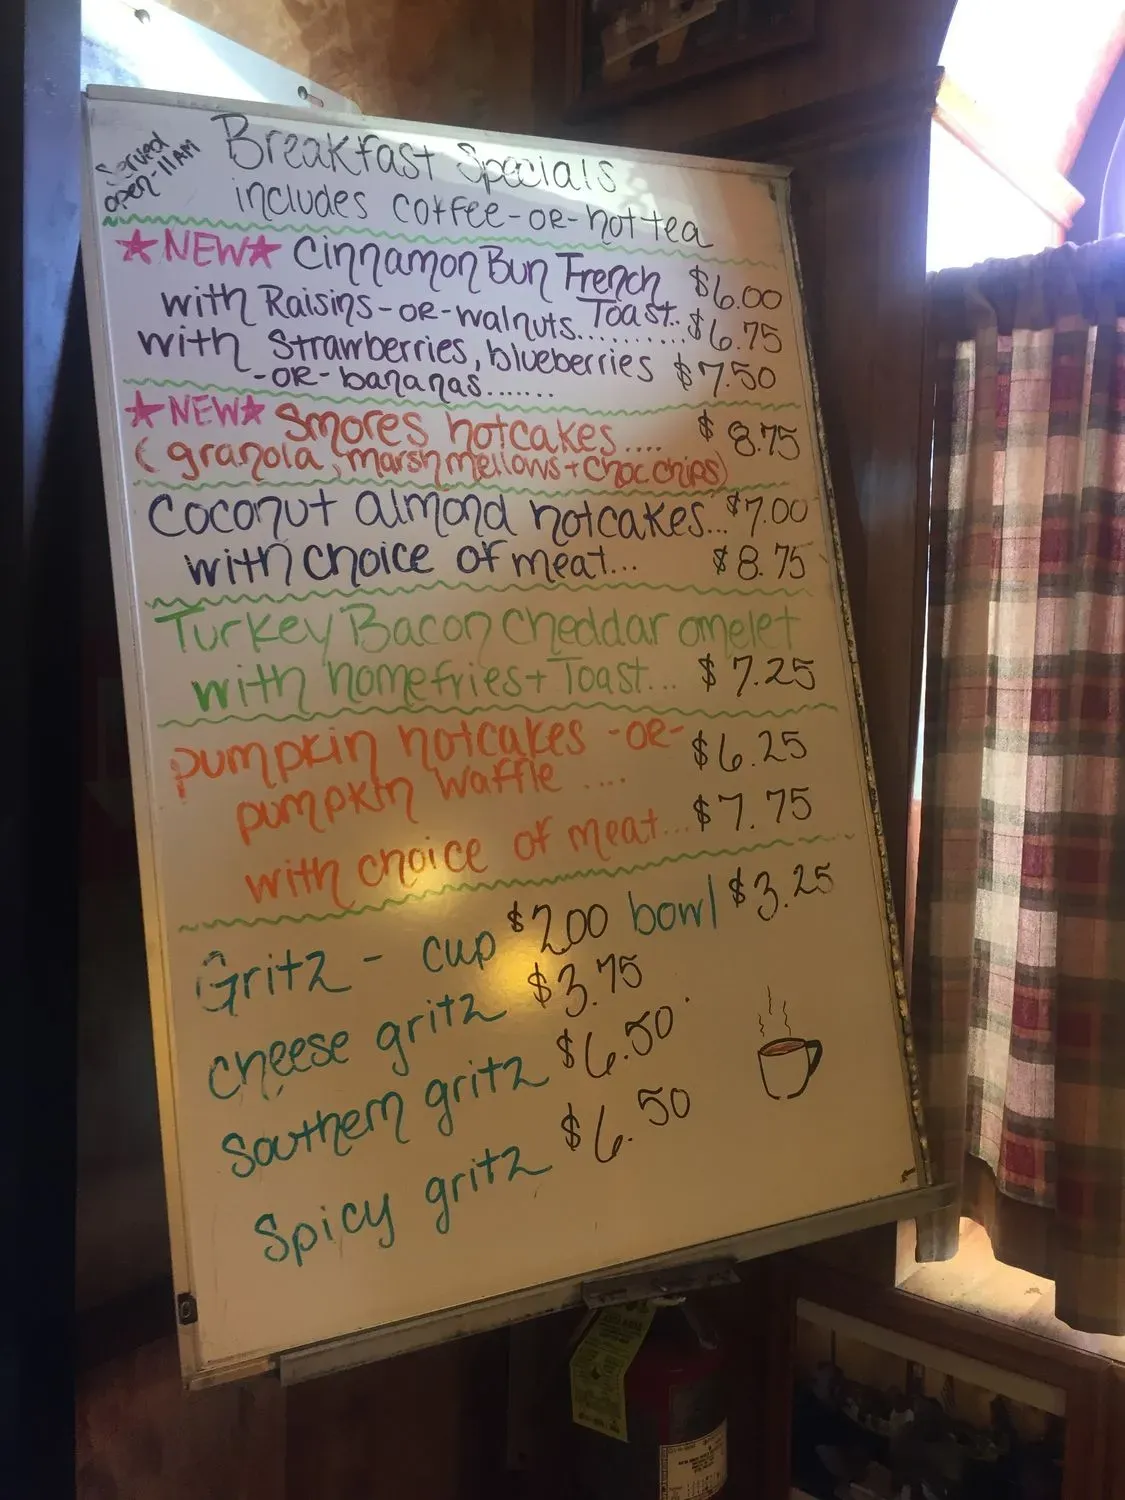 Served
open-11AM
Breakfast Specials
includes coffee-OR-hot tea
★NEW★ Cinnamon Bun French $6.00
Toast..
with Raisins-OR-walnuts.......... $6.75
with strawberries, blueberries $7.50
-OR- bananas......
★NEW★ Smores hotcakes.... $8.75
(granola, marshmellows + choc chips)
Coconut almond hotcakes... $7.00
with choice of meat... $8.75
Turkey Bacon cheddar omelet
with homefries + Toast... $7.25
pumpkin hotcakes -OR- $6.25
pumpkin waffle ....
with choice of meat... $7.75
Gritz - cup $2.00 bowl $3.25
cheese gritz $3.75
Southern gritz $6.50
Spicy gritz $6.50